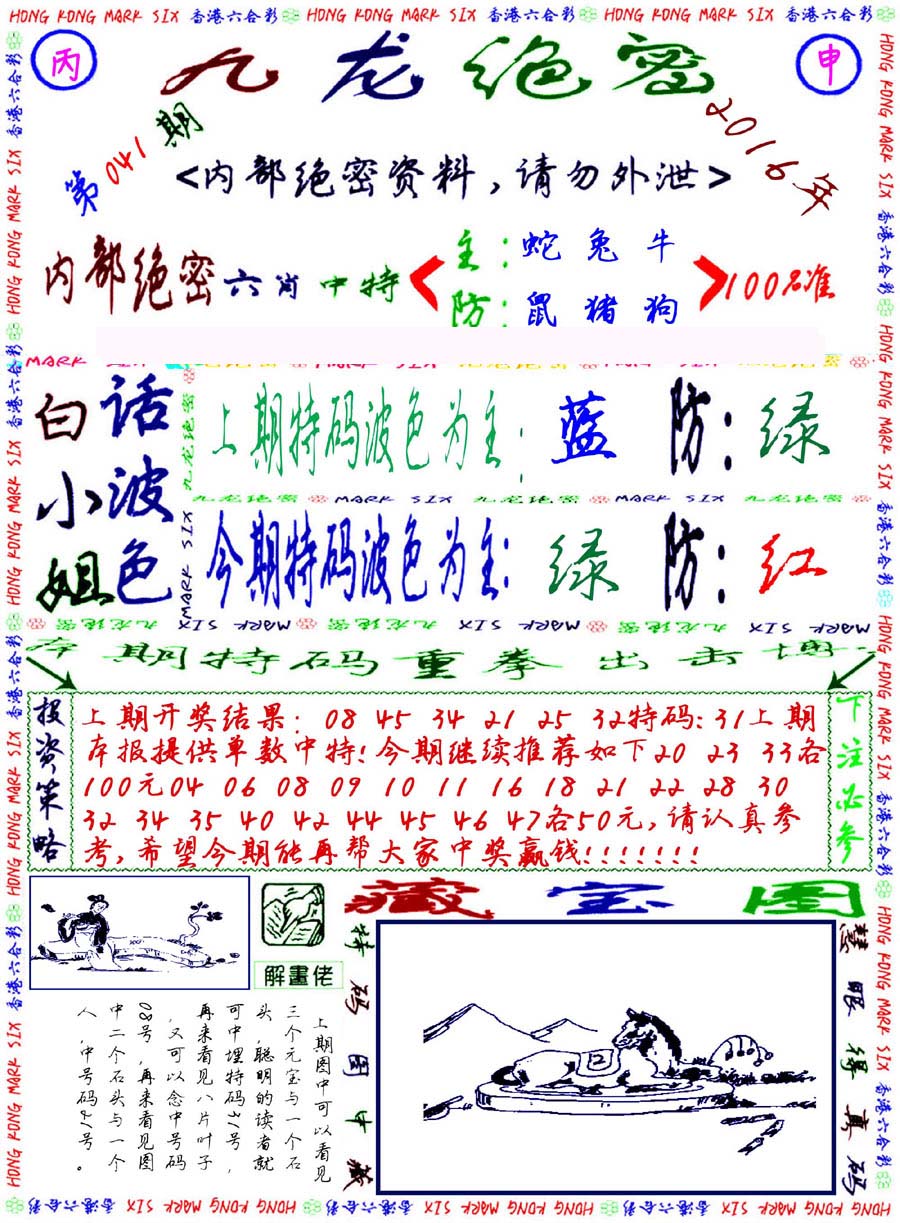 HONG KONG MARK SIX 香港六合彩 HONG KONG MARK SIX 香港六合彩 HONG KONG MARK SIX 香港六合彩
丙
九龙绝密
申
第041期
2016年
<内部绝密资料,请勿外泄>
内部绝密六肖中特
主:蛇兔牛
防:鼠猪狗
100%准
白话小波姐色
上期特码波色为主: 蓝 防: 绿
九龙绝密 MARK SIX 九龙绝密 MARK SIX 九龙绝密
今期特码波色为主: 绿 防: 红
本期特码重拳出击博
投资策略
上期开奖结果: 08 45 34 21 25 32特码:31上期
本报提供单数中特!今期继续推荐如下20 23 33各
100元04 06 08 09 10 11 16 18 21 22 28 30
32 34 35 40 42 44 45 46 47各50元,请认真参
考,希望今期能再帮大家中奖赢钱!!!!!!!
下注必参
解畫佬
藏宝图
特码图中藏
慧眼得真码
上期图中可以看见
三个元宝与一个石
头,聪明的读者就
可中埋特码31号,
再来看见八片叶子
,又可以念中号码
08号,再来看见图
中二个石头与一个
人,中号码21号。